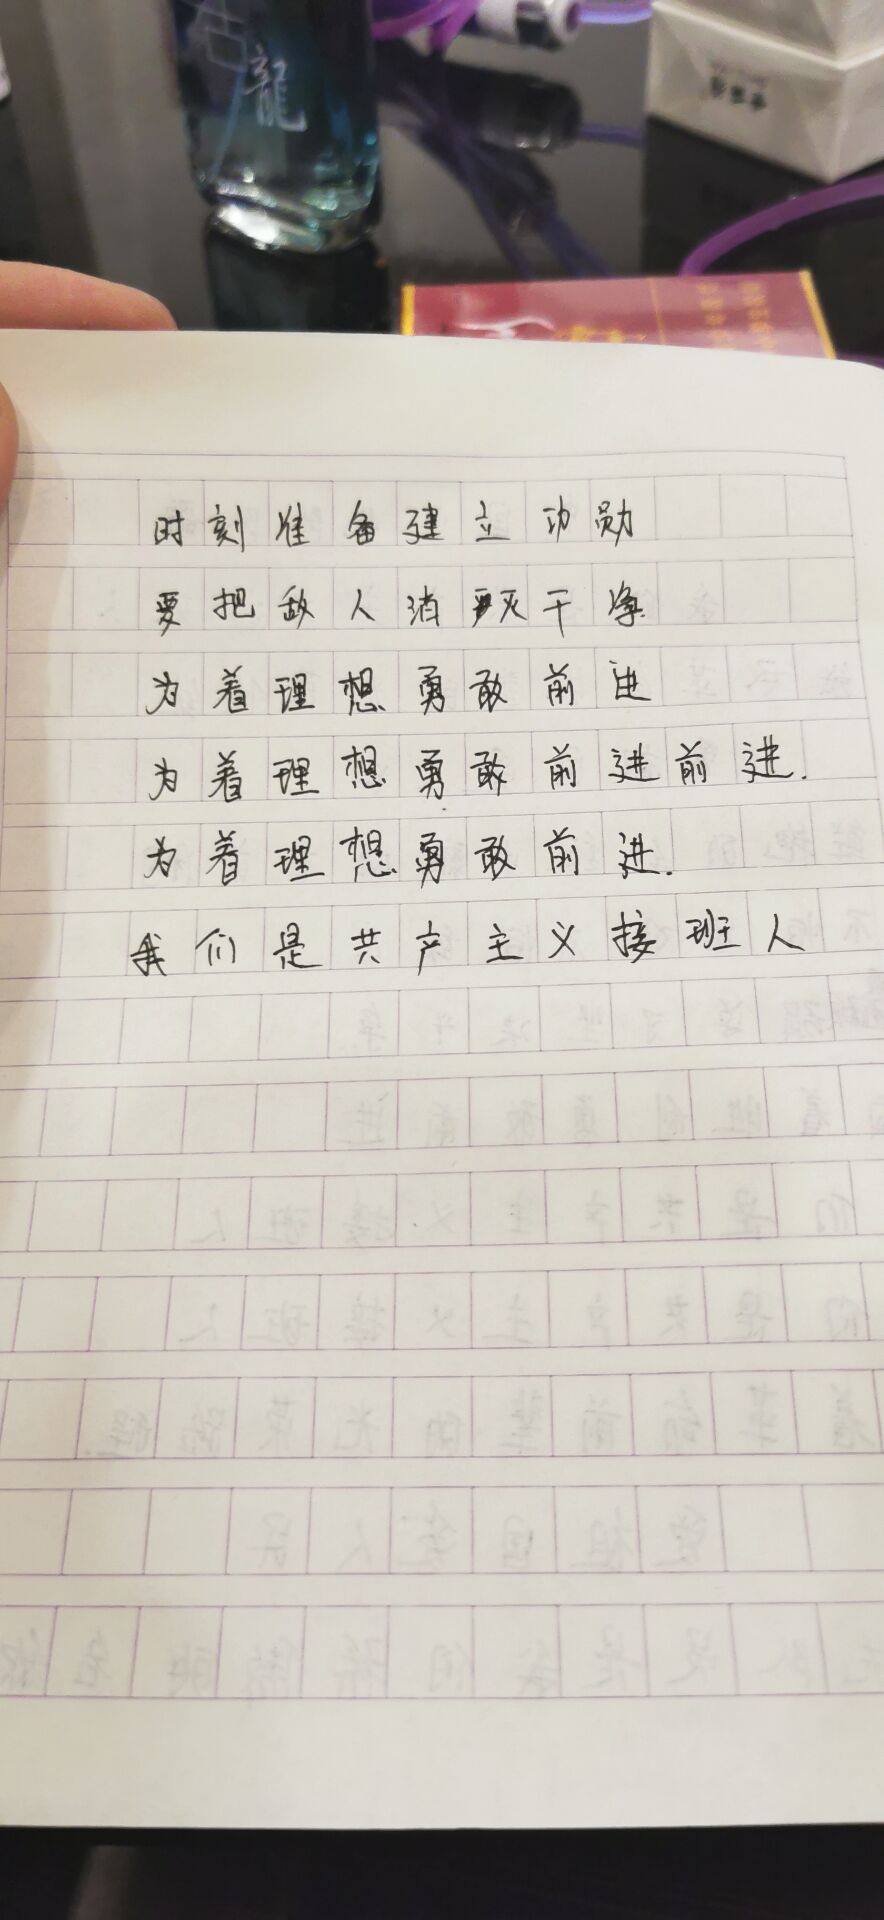 龍
时刻准备建立功勋
要把敌人消灭干净
为着理想勇敢前进
为着理想勇敢前进前进.
为着理想勇敢前进.
我们是共产主义接班人